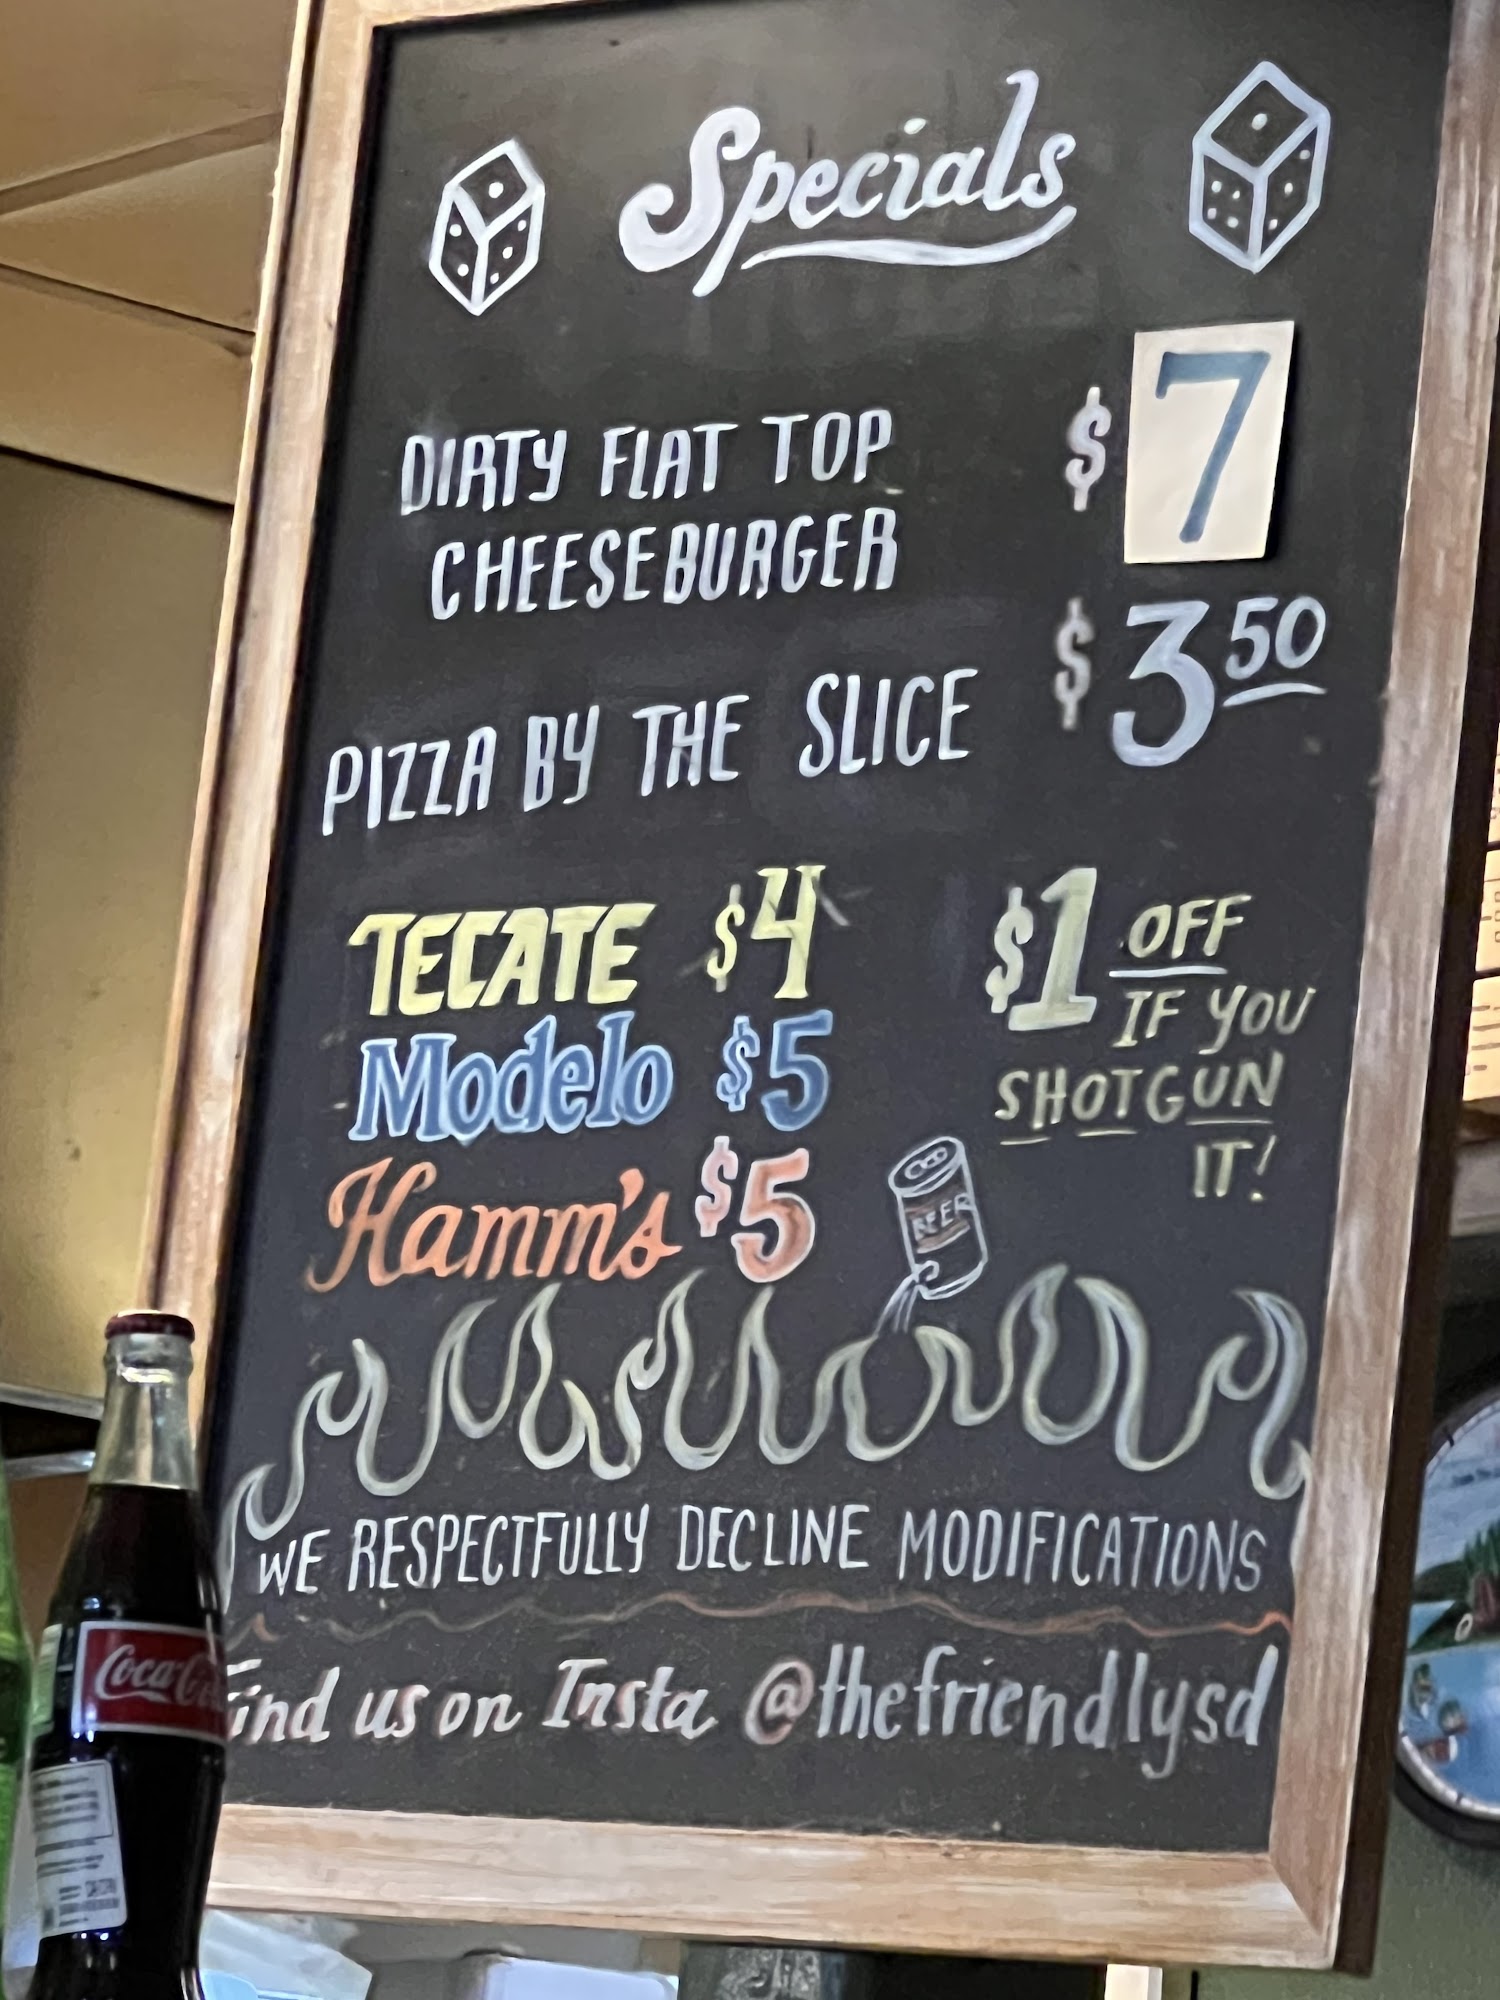 Specials
DIRTY FLAT TOP
CHEESEBURGER
$7
PIZZA BY THE SLICE
$3 50
TECATE $4
Modelo $5
Hamm's $5
$1 OFF
IF YOU
SHOTGUN
IT!
BEER
WE RESPECTFULLY DECLINE MODIFICATIONS
Find us on Insta @thefriendlysd
Coca-Cola